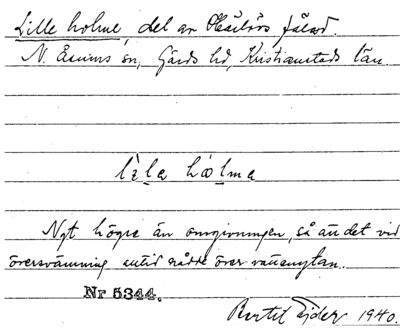 Lille holme, del av fälad.
N. Åsums sn, Gärds hd, Kristianstads län.
lìla hɷlma
Ngt högre än omgivningen, så att det vid
översvämning alltid nådde över vattenytan.
Nr 5344.
Bertil Ejder 1940.